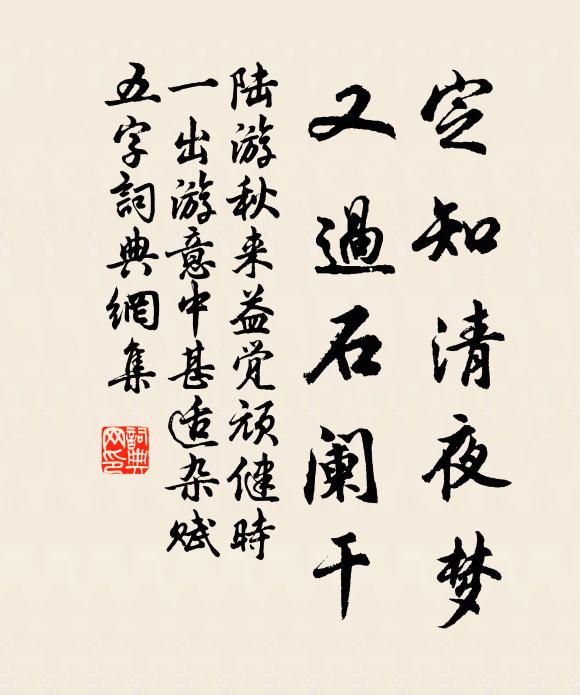 定知清夜梦
又過石阑干
陆游秋来益觉顽健時
一出游意中甚适杂赋
五字詞典網集
詞典網印